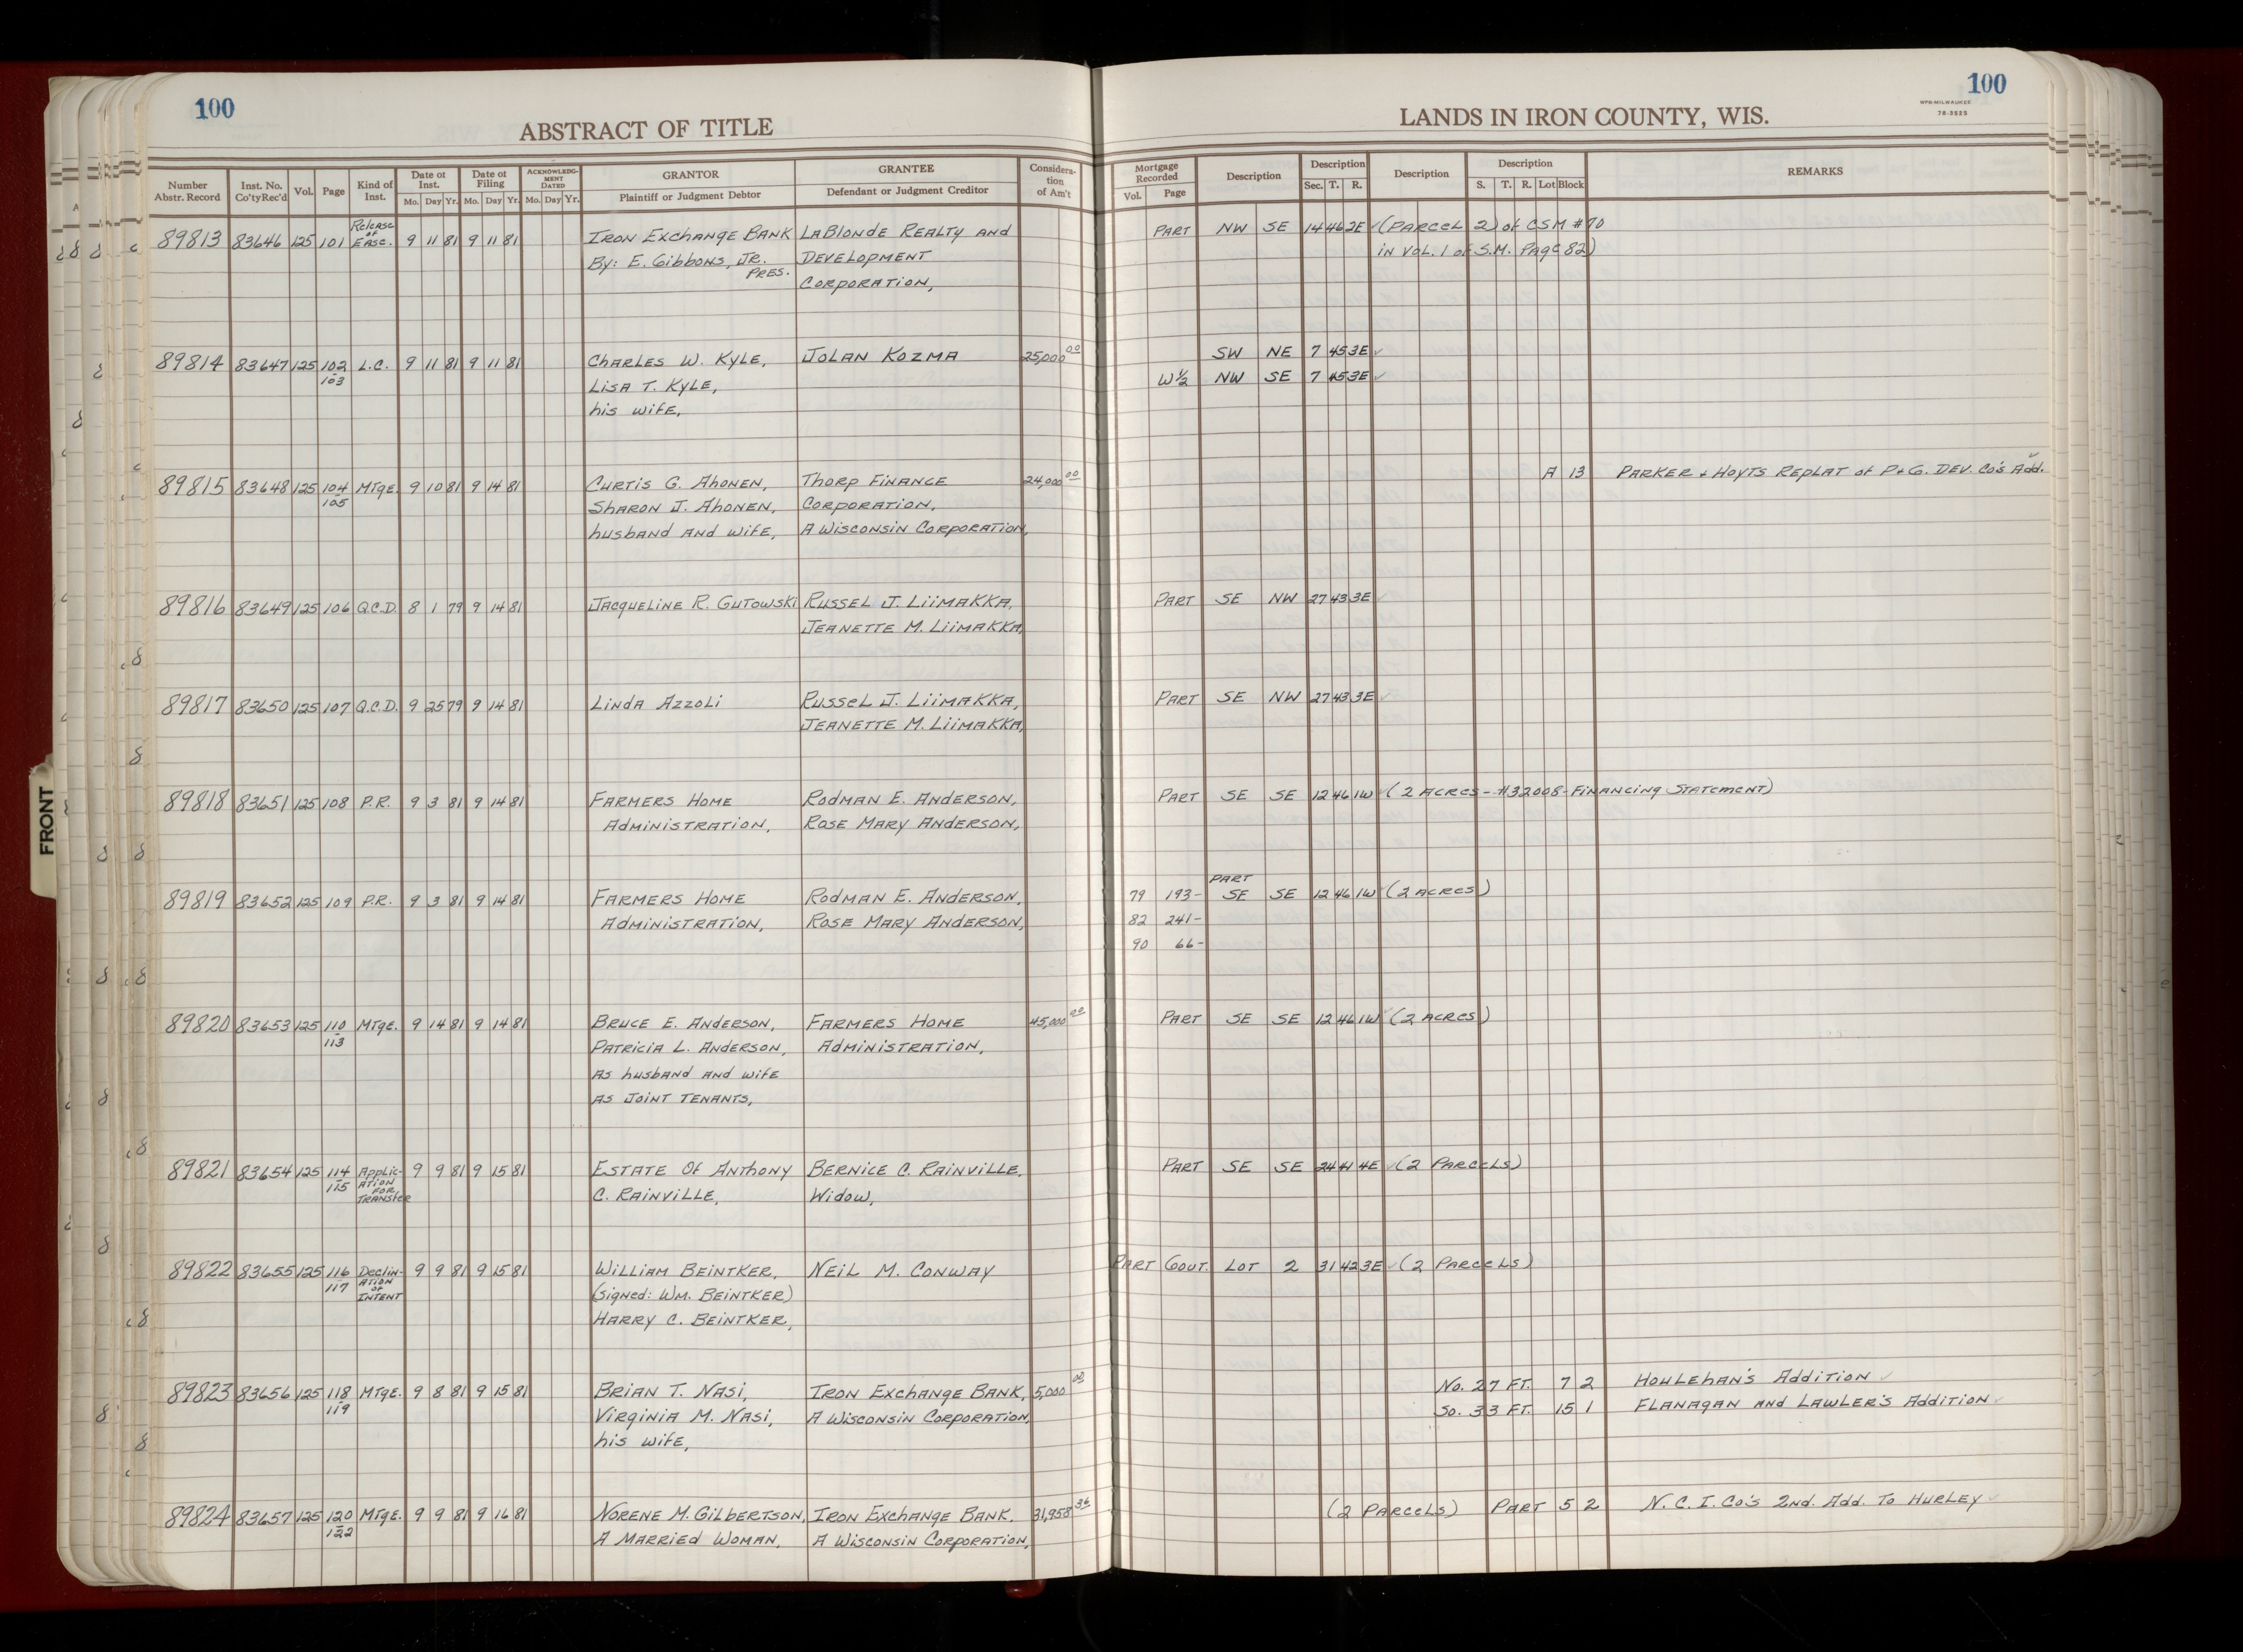 100
ABSTRACT OF TITLE
100
LANDS IN IRON COUNTY, WIS.
WPB-MILWAUKEE
78-3525
Number Abstr. Record | Inst. No. Co'ty Rec'd | Vol. | Page | Kind of Inst. | Date of Inst. Mo. Day Yr. | Date of Filing Mo. Day Yr. | ACKNOWLEDGMENT DATED Mo. Day Yr. | GRANTOR Plaintiff or Judgment Debtor | GRANTEE Defendant or Judgment Creditor | Consideration of Am't | Mortgage Recorded Vol. Page | Description | Description Sec. T. R. | Description | Description S. T. R. Lot Block | REMARKS
89813 83646 125 101 Release of Ease. 9 11 81 9 11 81 Iron Exchange Bank LaBlonde Realty and PART NW SE 14 46 2E (Parcel 2) of CSM #70
By: E. Gibbons, Jr. Pres. Development in Vol. 1 of S.M. Page 82)
Corporation,
89814 83647 125 102-103 L.C. 9 11 81 9 11 81 Charles W. Kyle, Jolan Kozma 25,000 00 SW NE 7 45 3E
Lisa T. Kyle, W½ NW SE 7 45 3E
his wife,
89815 83648 125 104-105 Mtge. 9 10 81 9 14 81 Curtis G. Ahonen, Thorp Finance 24,000 00 A 13 Parker + Hoyts Replat of P+G. Dev. Co's Add.
Sharon J. Ahonen, Corporation,
husband and wife, A Wisconsin Corporation,
89816 83649 125 106 Q.C.D. 8 1 79 9 14 81 Jacqueline R. Gutowski Russel J. Liimakka, PART SE NW 27 43 3E
Jeanette M. Liimakka,
89817 83650 125 107 Q.C.D. 9 25 79 9 14 81 Linda Azzoli Russel J. Liimakka, PART SE NW 27 43 3E
Jeanette M. Liimakka,
89818 83651 125 108 P.R. 9 3 81 9 14 81 Farmers Home Rodman E. Anderson, PART SE SE 12 46 1W (2 Acres - #32008 - Financing Statement)
Administration, Rose Mary Anderson,
89819 83652 125 109 P.R. 9 3 81 9 14 81 Farmers Home Rodman E. Anderson, 79 193- PART SE SE 12 46 1W (2 Acres)
Administration, Rose Mary Anderson, 82 241-
90 66-
89820 83653 125 110-113 Mtge. 9 14 81 9 14 81 Bruce E. Anderson, Farmers Home 45,000 00 PART SE SE 12 46 1W (2 Acres)
Patricia L. Anderson, Administration,
as husband and wife
as Joint Tenants,
89821 83654 125 114-115 Application for Transfer 9 9 81 9 15 81 Estate of Anthony Bernice C. Rainville, PART SE SE 24 41 4E (2 Parcels)
C. Rainville, Widow,
89822 83655 125 116-117 Declination of Intent 9 9 81 9 15 81 William Beintker, Neil M. Conway PART Gout. LOT 2 31 42 3E (2 Parcels)
(Signed: Wm. Beintker)
Harry C. Beintker,
89823 83656 125 118-119 Mtge. 9 8 81 9 15 81 Brian T. Nasi, Iron Exchange Bank, 5,000 00 No. 27 FT. 7 2 Houlehan's Addition
Virginia M. Nasi, A Wisconsin Corporation, So. 33 FT. 15 1 Flanagan and Lawler's Addition
his wife,
89824 83657 125 120-122 Mtge. 9 9 81 9 16 81 Norene M. Gilbertson, Iron Exchange Bank. 31,958 36 (2 Parcels) PART 5 2 N.C.I. Co's 2nd. Add. To Hurley
A Married Woman, A Wisconsin Corporation,
FRONT